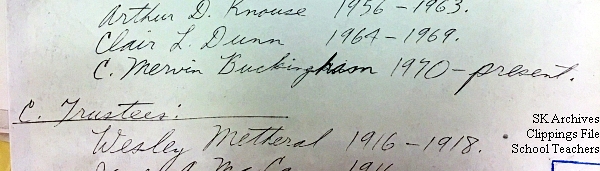 Arthur D. Knouse 1956-1963.
Clair L. Dunn 1964-1969.
C. Mervin Buckingham 1970-present.
C. Trustees:
Wesley Metheral 1916-1918.
SK Archives
Clippings File
School Teachers